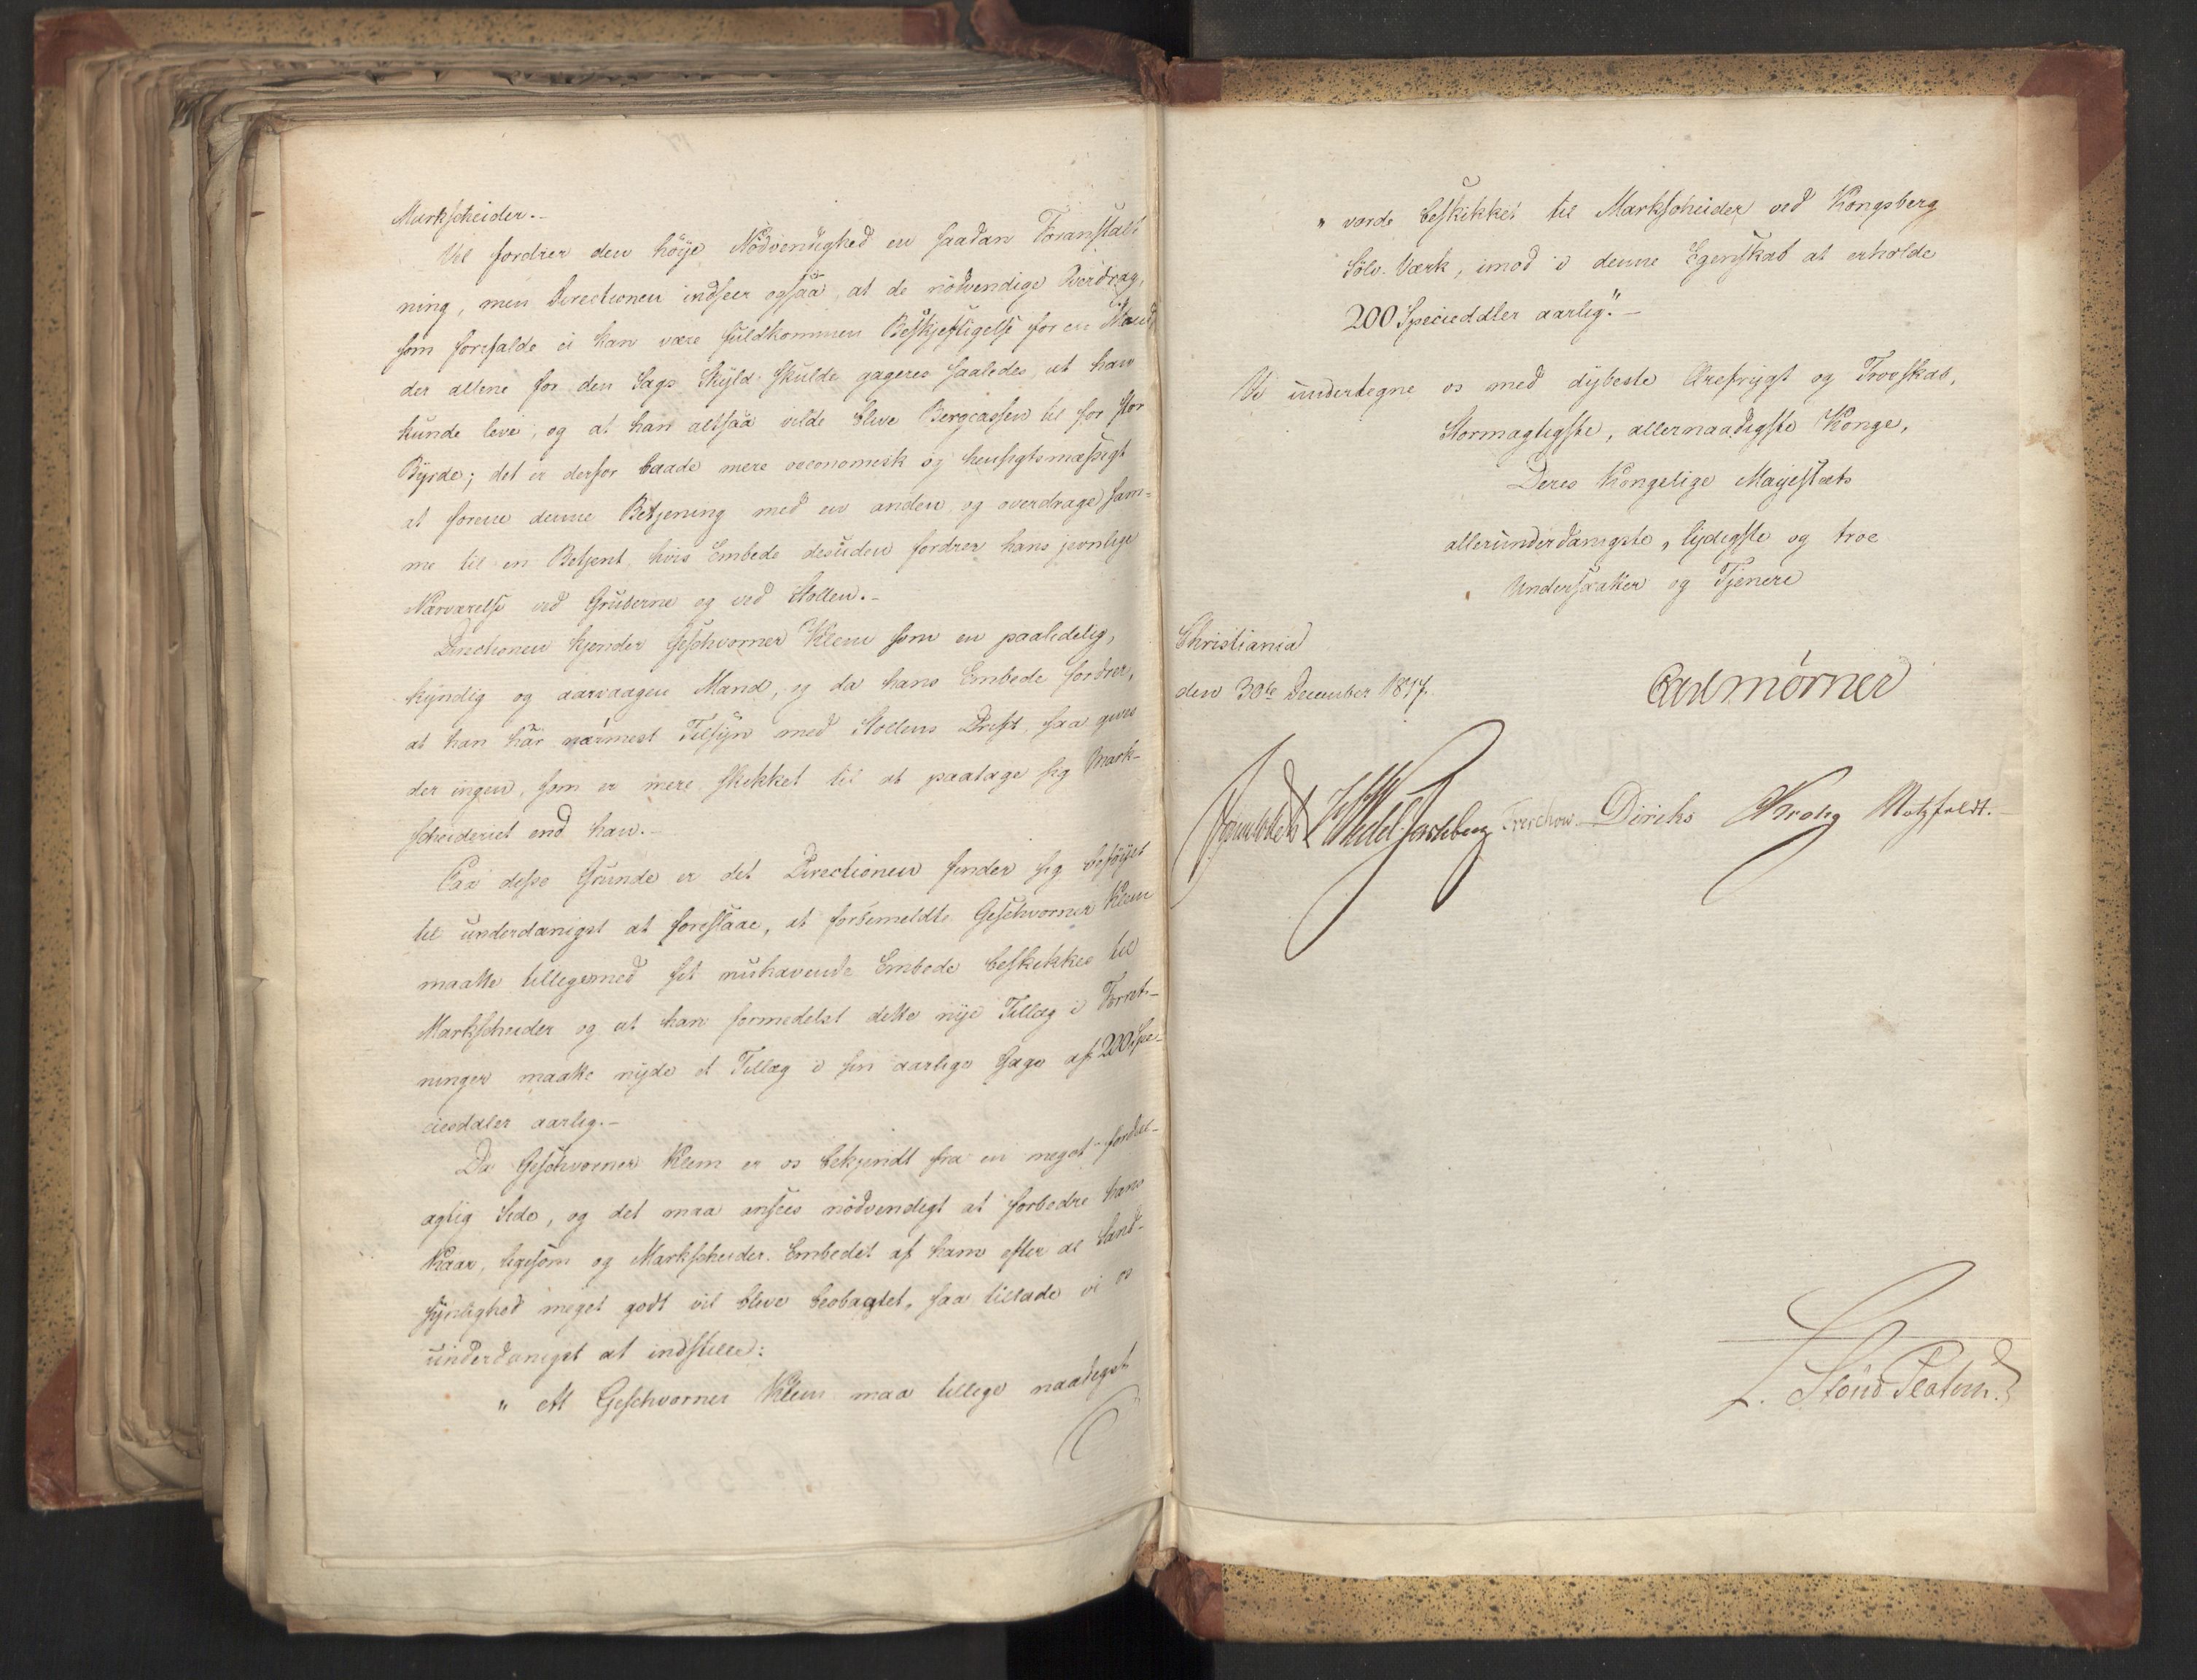 Markscheider.-
Vel fordrer den höye Nödvendighed en saadan Foranstalt
ning, men Directionen indseer ogsaa, at de nödvendige Overdrag,
som forefalde ei kan være fuldkommen Beskjeftigelse for en Mand
der allene for den Sags Skyld skulde gageres saaledes, at han
kunde leve, og at han altsaa vilde blive Bergcassen til for stor
Byrde; det er derfor baade mere oeconomisk og hensigtsmæssigt
at forene denne Betjening med en anden og overdrage sam-
me til en Betjent, hvis Embede desuden fordrer hans jevnlige
Nærværelse ved Gruberne og ved Stollen.-
Directionen kjender Geschvorner Klem som en paalidelig,
kyndig og aarvaagen Mand, og da hans Embede fordrer,
at han har nærmest Tilsyn med Stollens Drift, saa gives
der ingen, som er mere skikket til at paatage sig Mark-
scheideriet end han.-
Paa disse Grunde er det Directionen finder sig beföyet
til underdanigst at foreslaae, at forbemeldte Geschvorner Klem
maatte tilligemed sit nuhavende Embede beskikkes til
Markscheider og at han formedelst dette nye Tillæg i Forret-
ninger maatte nyde et Tillæg i sin aarlige Gage af 200 Spe-
ciesdaler aarlig.-
Da Geschvorner Klem er os bekjendt fra en meget fordeel-
agtig Side, og det maa ansees nödvendigt at forbedre hans
Kaar, ligesom og Markscheider Embedet af ham efter al Sand-
synlighed meget godt vil blive beobagtet, saa tillade vi os
underdanigst at indstille:
" At Geschvorner Klem maa tillige naadigst
" vorde beskikket til Markscheider ved Kongsberg
Sölv-Værk, imod i denne Egenskab at erholde
200 Specieddler aarlig."-
Vi undertegne os med dybeste Ærefrygt og Troeskab,
Stormægtigste, allernaadigste Konge,
Deres Kongelige Majestæts
allerunderdanigste, lydigste og troe
Undersaatter og Tjenere
Christiania
den 30te December 1817.
Carl Mörner
Sommerhielm Wedel Jarlsberg Treschow Diriks Krohg Motzfeldt.
L. Stoud Platou